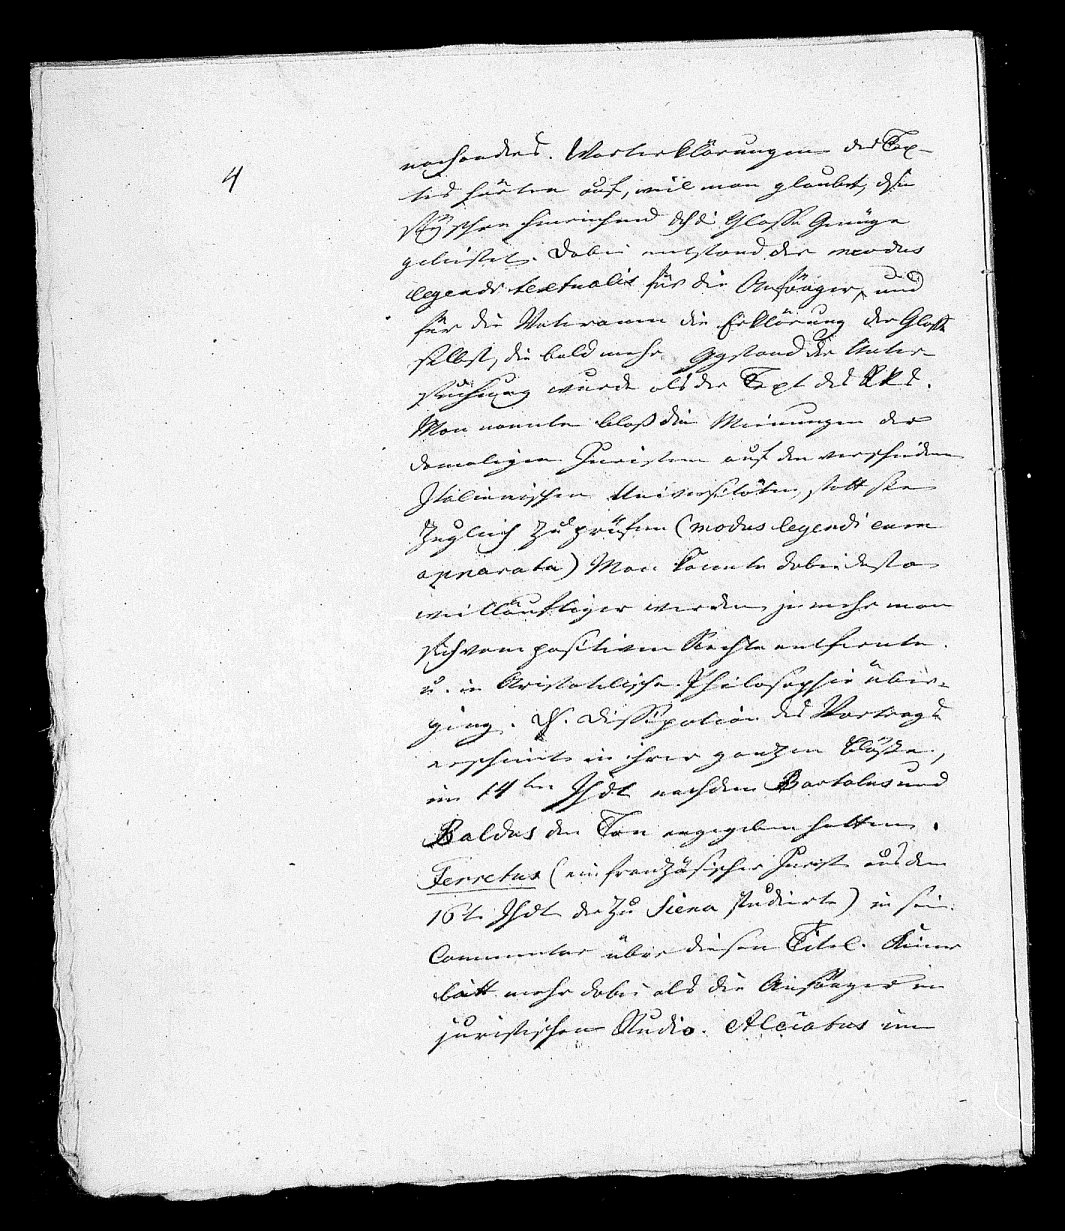 4
nachandres. Worterklärungen des Tex-
tes hörten auf, weil man glaubte, dßn
sey schon hinreichend dch die Glosse Genüge
geleistet. Dabei entstand der modus
legendi textualis für die Anfänger, und
für die Veteranen die Erklärung der Glosse
selbst, die bald mehr Ggstand der Unter-
suchung wurde als der Text des
Man nannte bloß die Meinungen der
damaligen Juristen auf den verschieden
Italienischen Universitäten, statt sie
zugleich zu prüfen (modus legendi cum
apparatu) Man konnte dabei desto
weitläuftiger werden, je mehr man
sich vom positiven Rechte entfernte.
u. in Aristotelische Philosophie über-
ging. D. Dissipation des Vortrags
erscheint in ihrer ganzen Blöße,
im 14ten Jhdt nachdem Bartolus und
Baldus den Ton angegeben hatten.
Ferretus (ein französischer Jurist aus dem
16t. Jhdt der zu Siena studierte) in sein.
Commentar über diesen Titel.
mehr dabei als die Anfänger im
juristischen Studio. Alciatus im